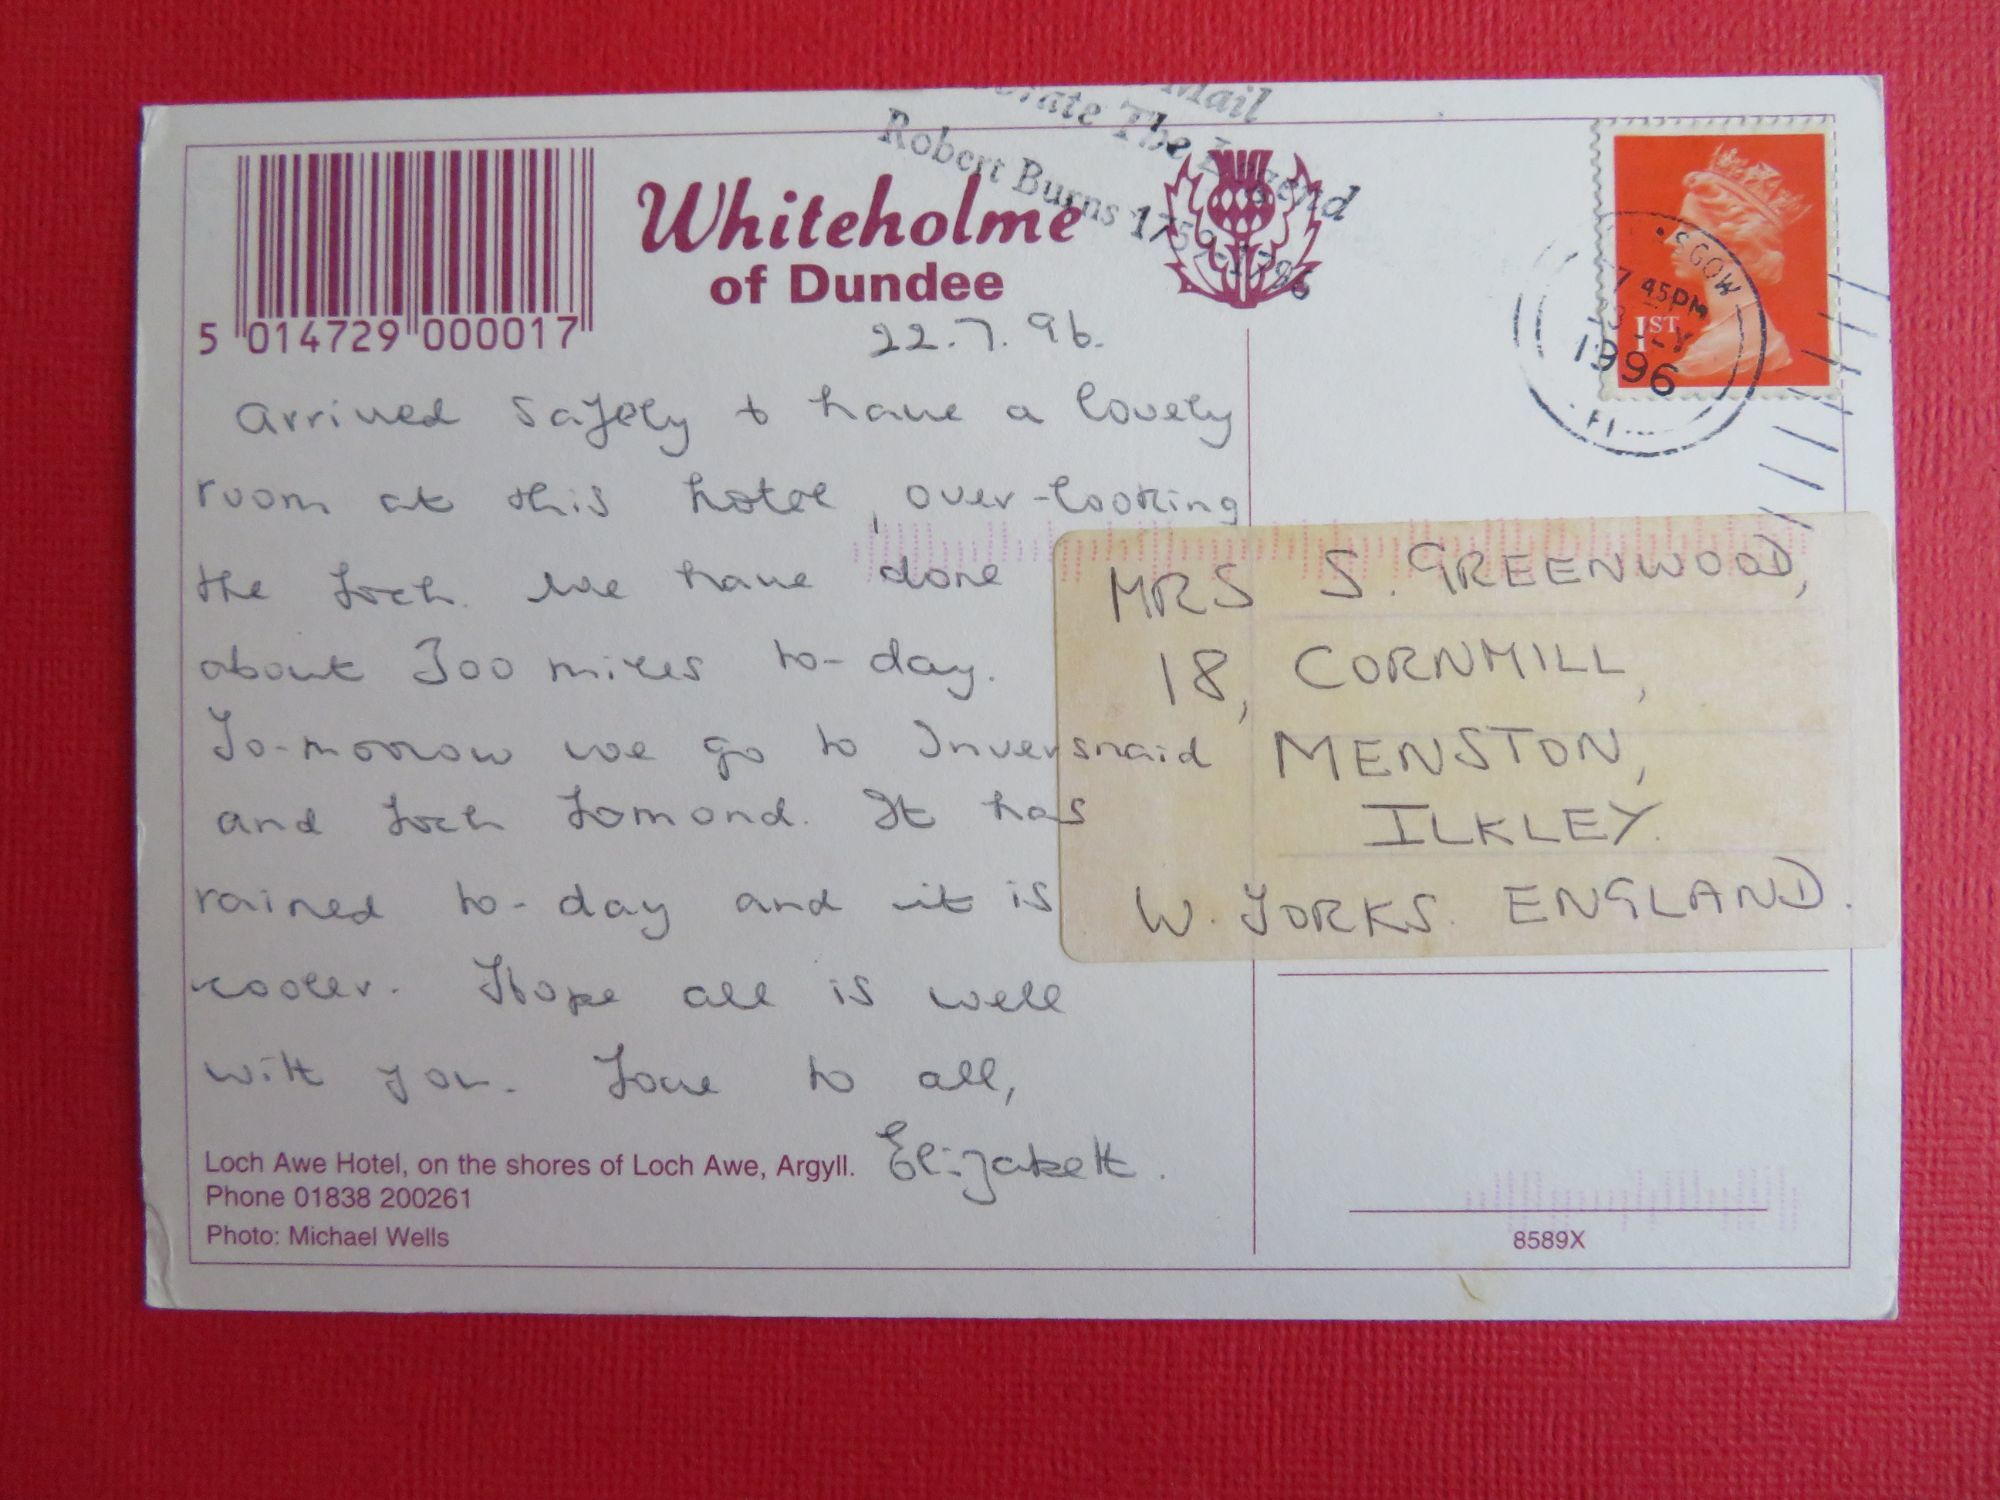 Mail
The Legend
Robert Burns 1759-1796
Whiteholme
of Dundee
5 014729 000017
22.7.96.
Arrived safely & have a lovely
room at this hotel, over-looking
the Loch. We have done
about 300 miles to-day.
To-morrow we go to Inversnaid
and Loch Lomond. It has
rained to-day and it is
cooler. Hope all is well
with you. Love to all,
Elizabeth.
Loch Awe Hotel, on the shores of Loch Awe, Argyll.
Phone 01838 200261
Photo: Michael Wells
1ST
7 45PM
1996
MRS S. GREENWOOD,
18, CORNMILL,
MENSTON,
ILKLEY.
W. YORKS. ENGLAND.
8589X